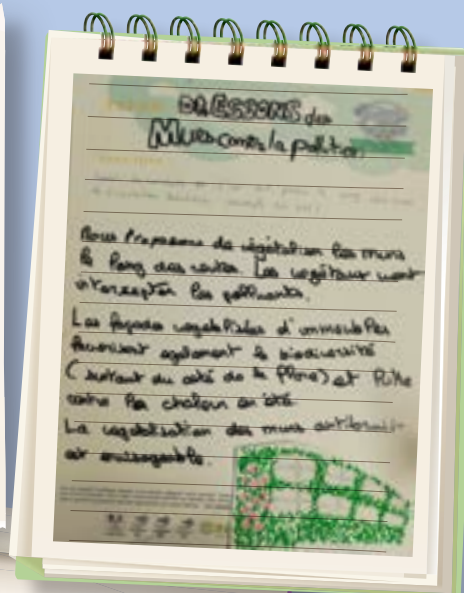 DRESSONS des
Murs contre la pollution
Nous Proposons de végétaliser les murs
le long des routes. Les végétaux vont
intercepter les polluants.
Les façades végétalisées d'immeubles
favorisent également la biodiversité
(surtout du coté de la flore) et lutte
contre les chaleurs en été.
La végétalisation des murs antibruit
est envisageable.